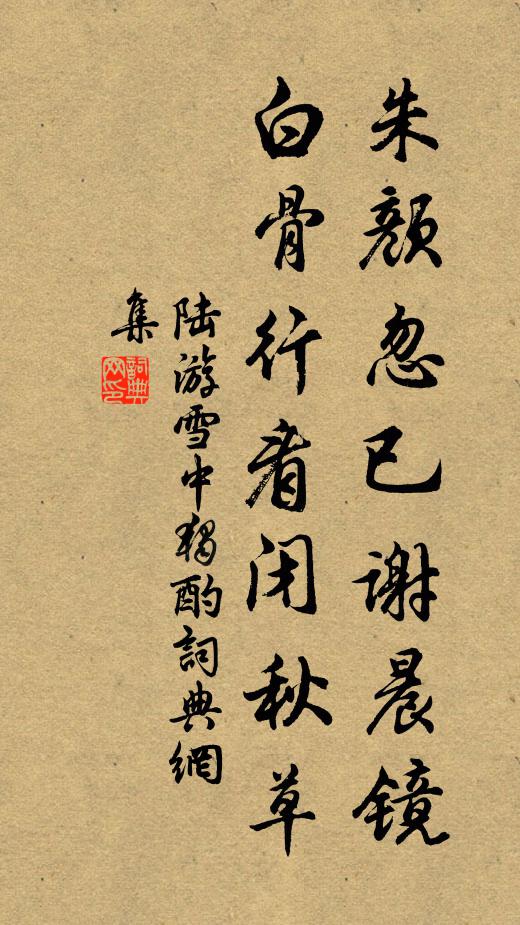 朱颜忽已谢晨镜
白骨行看闭秋草
陆游雪中独酌詞典網
集
詞典
网印